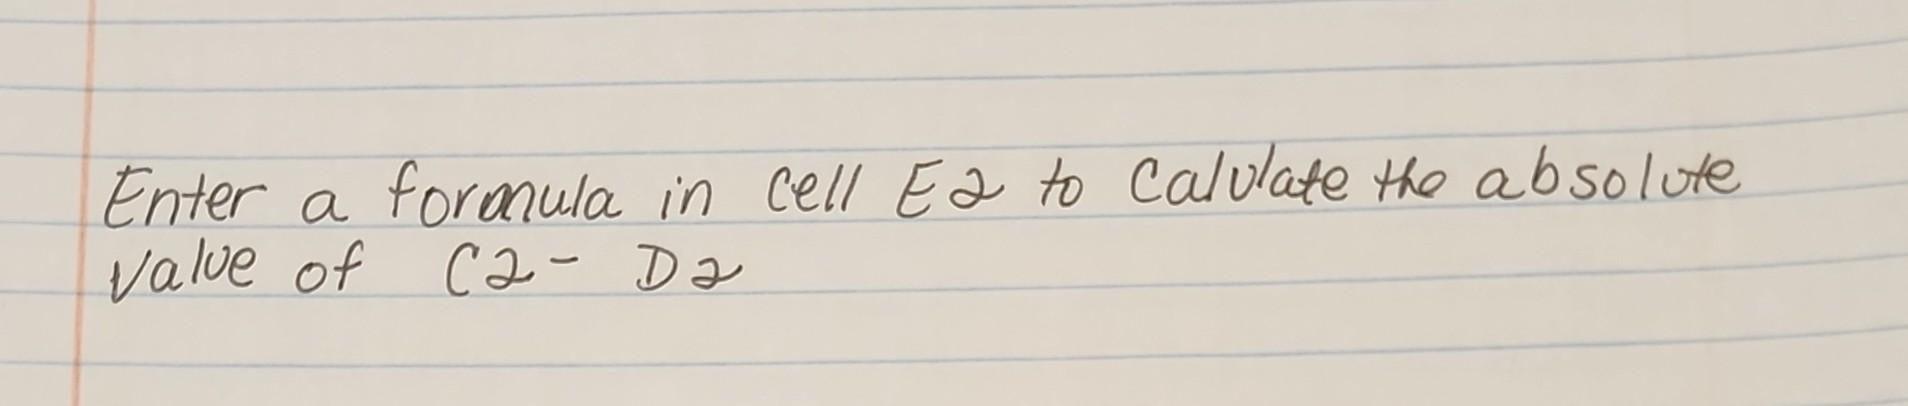 Enter a formula in cell E2 to Calulate the absolute
value of C2 - D2